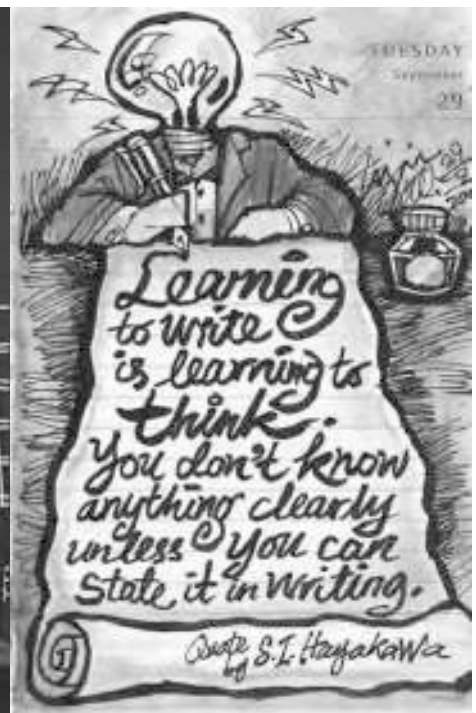 TUESDAY
September
29
Learning
to write
is learning to
think.
You don't know
anything clearly
unless you can
State it in writing.
Quote
by S.I. Hayakawa